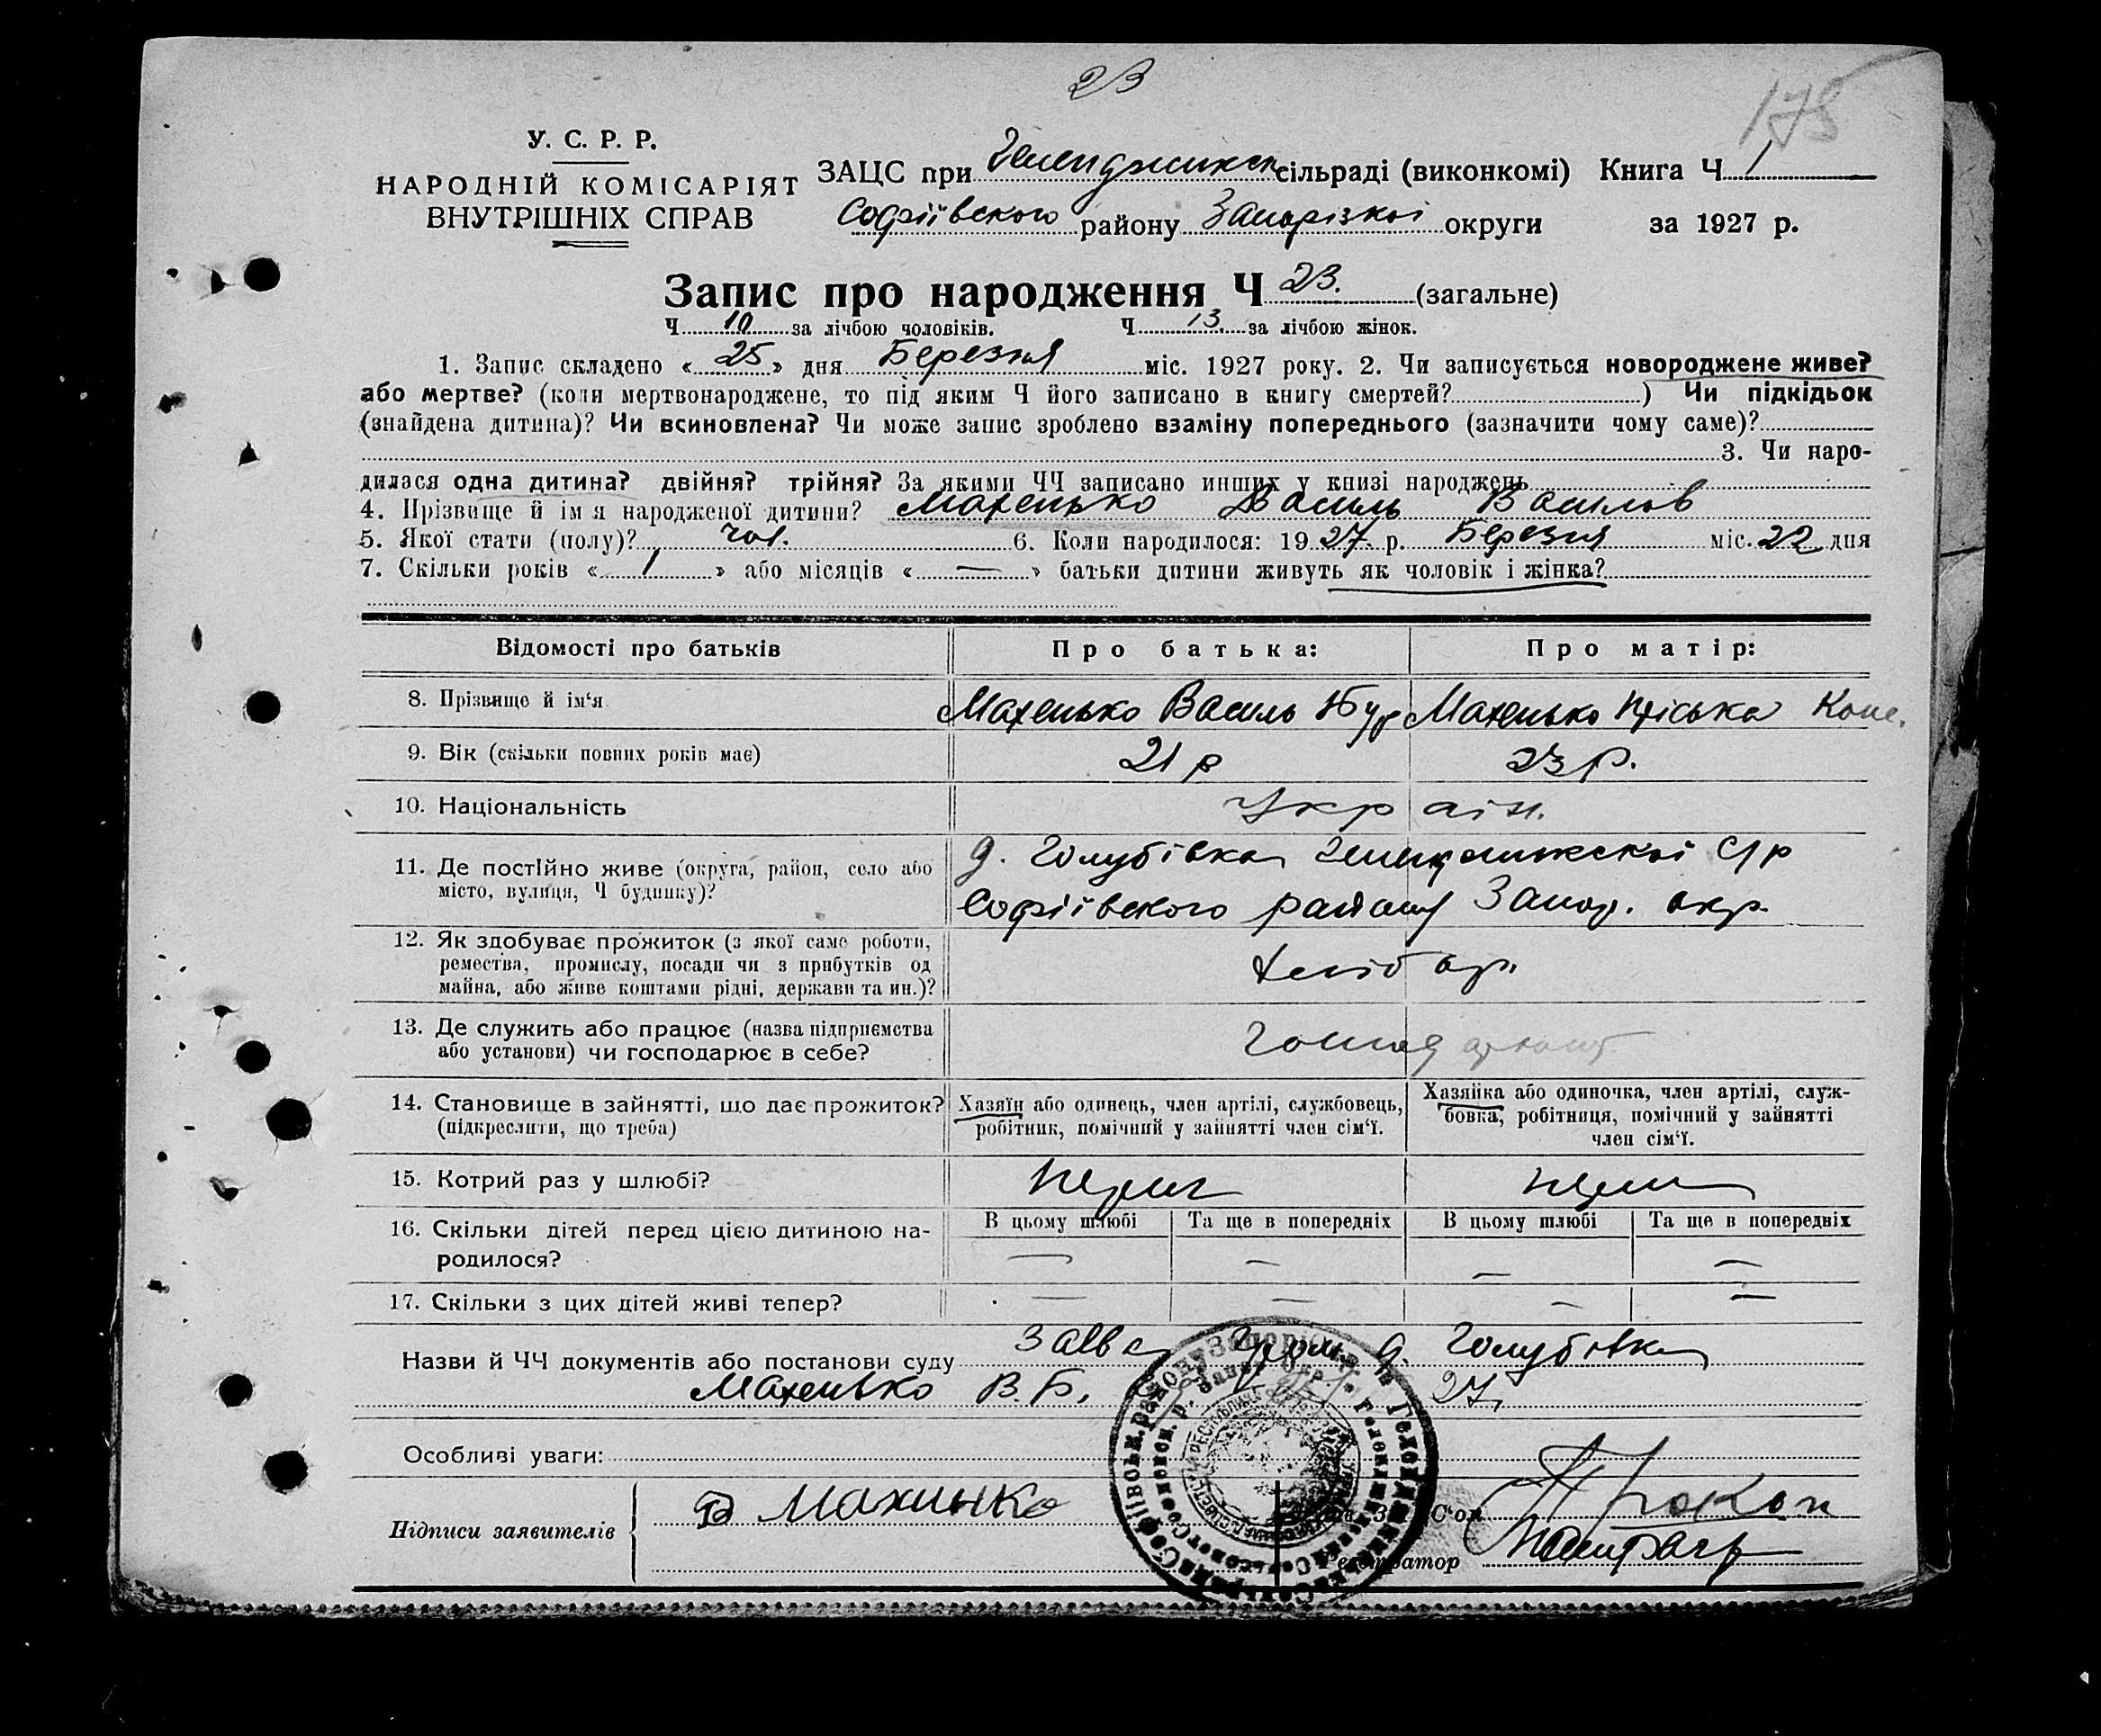 23
178
У. С. Р. Р.
НАРОДНІЙ КОМІСАРІЯТ
ВНУТРІШНІХ СПРАВ
ЗАЦС при Геленджикск сільраді (виконкомі) Книга Ч 1
Софіївского району Запорізкої округи за 1927 р.
Запис про народження Ч 23. (загальне)
Ч 10 за лічбою чоловіків. Ч 13 за лічбою жінок.
1. Запис складено « 25 » дня Березня міс. 1927 року. 2. Чи записується новороджене живе?
або мертве? (коли мертвонароджене, то під яким Ч його записано в книгу смертей? ) Чи підкідьок
(знайдена дитина)? Чи всиновлена? Чи може запис зроблено взаміну попереднього (зазначити чому саме)?
3. Чи наро-
дилася одна дитина? двійня? трійня? За якими ЧЧ записано инших у книзі народжень
4. Прізвище й ім я народженої дитини? Махенько Василь Васильов
5. Якої стати (полу)? чол. 6. Коли народилося: 19 27 р. Березня міс. 22 дня
7. Скільки років « 1 » або місяців « — » батьки дитини живуть як чоловік і жінка?
Відомості про батьків Про батька: Про матір:
8. Прізвище й ім‘я Махенько Василь Махенько Пріська
9. Вік (скільки повних років має) 21 р 23 р.
10. Національність Україн.
11. Де постійно живе (округа, район, село або
місто, вулиця, Ч будинку)?
д. Голубівка Геленджикской С/р
Софіївского району Запор. окр.
12. Як здобуває прожиток (з якої саме роботи,
ремества, промислу, посади чи з прибутків од
майна, або живе коштами рідні, держави та ин.)?
хлібор.
13. Де служить або працює (назва підприємства
або установи) чи господарює в себе?
14. Становище в зайнятті, що дає прожиток?
(підкреслити, що треба)
Хазяїн або одинець, член артілі, службовець,
робітник, помічний у зайнятті член сім‘ї.
Хазяйка або одиночка, член артілі, служ-
бовка, робітниця, помічний у зайнятті
член сім‘ї.
15. Котрий раз у шлюбі?
16. Скільки дітей перед цією дитиною на-
родилося?
В цьому шлюбі Та ще в попередніх В цьому шлюбі Та ще в попередніх
— — — —
17. Скільки з цих дітей живі тепер? — — — —
Назви й ЧЧ документів або постанови суду Заява Гром. д. Голубівка
Махенько В. Б. 27.
Особливі уваги:
Підписи заявителів В Махинко
Прокоп
Реєстратор